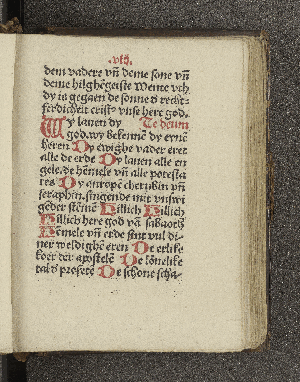 .viij.
dem vadere vñ deme sone vñ
deme hilghēgeiste Wente vth
dy is gegaen de sonne d' recht-
ferdicheit crist' vnse here god.
Wy lauen dy Te deum
god. wy bekennē dy ernē
heren Dy ewighe vader eret
alle de erde Dy lauen alle en
gele. de hēmele vñ alle potesta
tes Dy anropē cherubin vñ
seraphin. singende mit vnswi
geder stēme Hillich Hillich
Hillich here god vā sabaoth
Hēmele vñ erde sint vul di-
ner weldighē eren De erlike
koer der apostelē De lōnelike
tal d' profetē De schone scha-